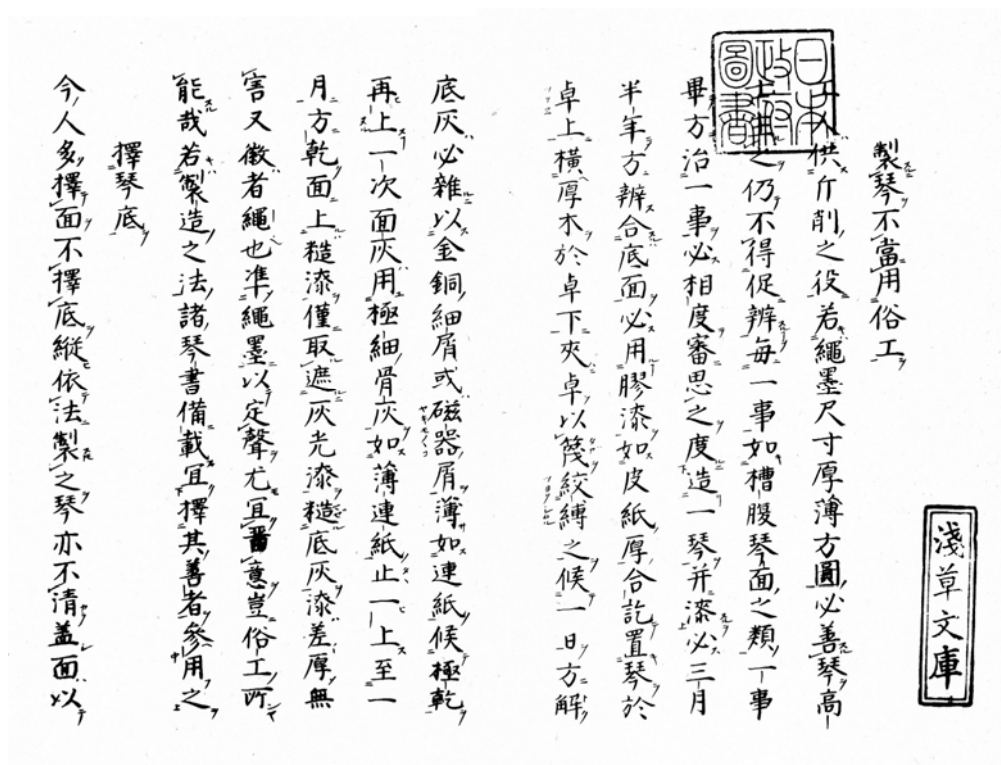 淺草文庫
日本
政府
圖書
製琴不當用俗工
人供斤削之役若繩墨尺寸厚薄方圓必善琴高
之仍不得促辨每一事如槽腹琴面之類一事
畢方治一事必相度審思之度造一琴并漆必三月
半年方辨合底面必用膠漆如皮紙厚合訖置琴於
卓上橫厚木於卓下夾卓以篾絞縛之候一日方解
底灰必雜以金銅細屑或磁器屑薄如連紙候極乾
再上一次面灰用極細骨灰如薄連紙止一上至一
月方乾面上糙漆僅取遮灰光漆糙底灰漆差厚無
害又徽者繩也準繩墨以定聲尤宜畱意豈俗工所
能哉若製造之法諸琴書備載宜擇其善者參用之
擇琴底
今人多擇面不擇底縱依法製之琴亦不清蓋面以